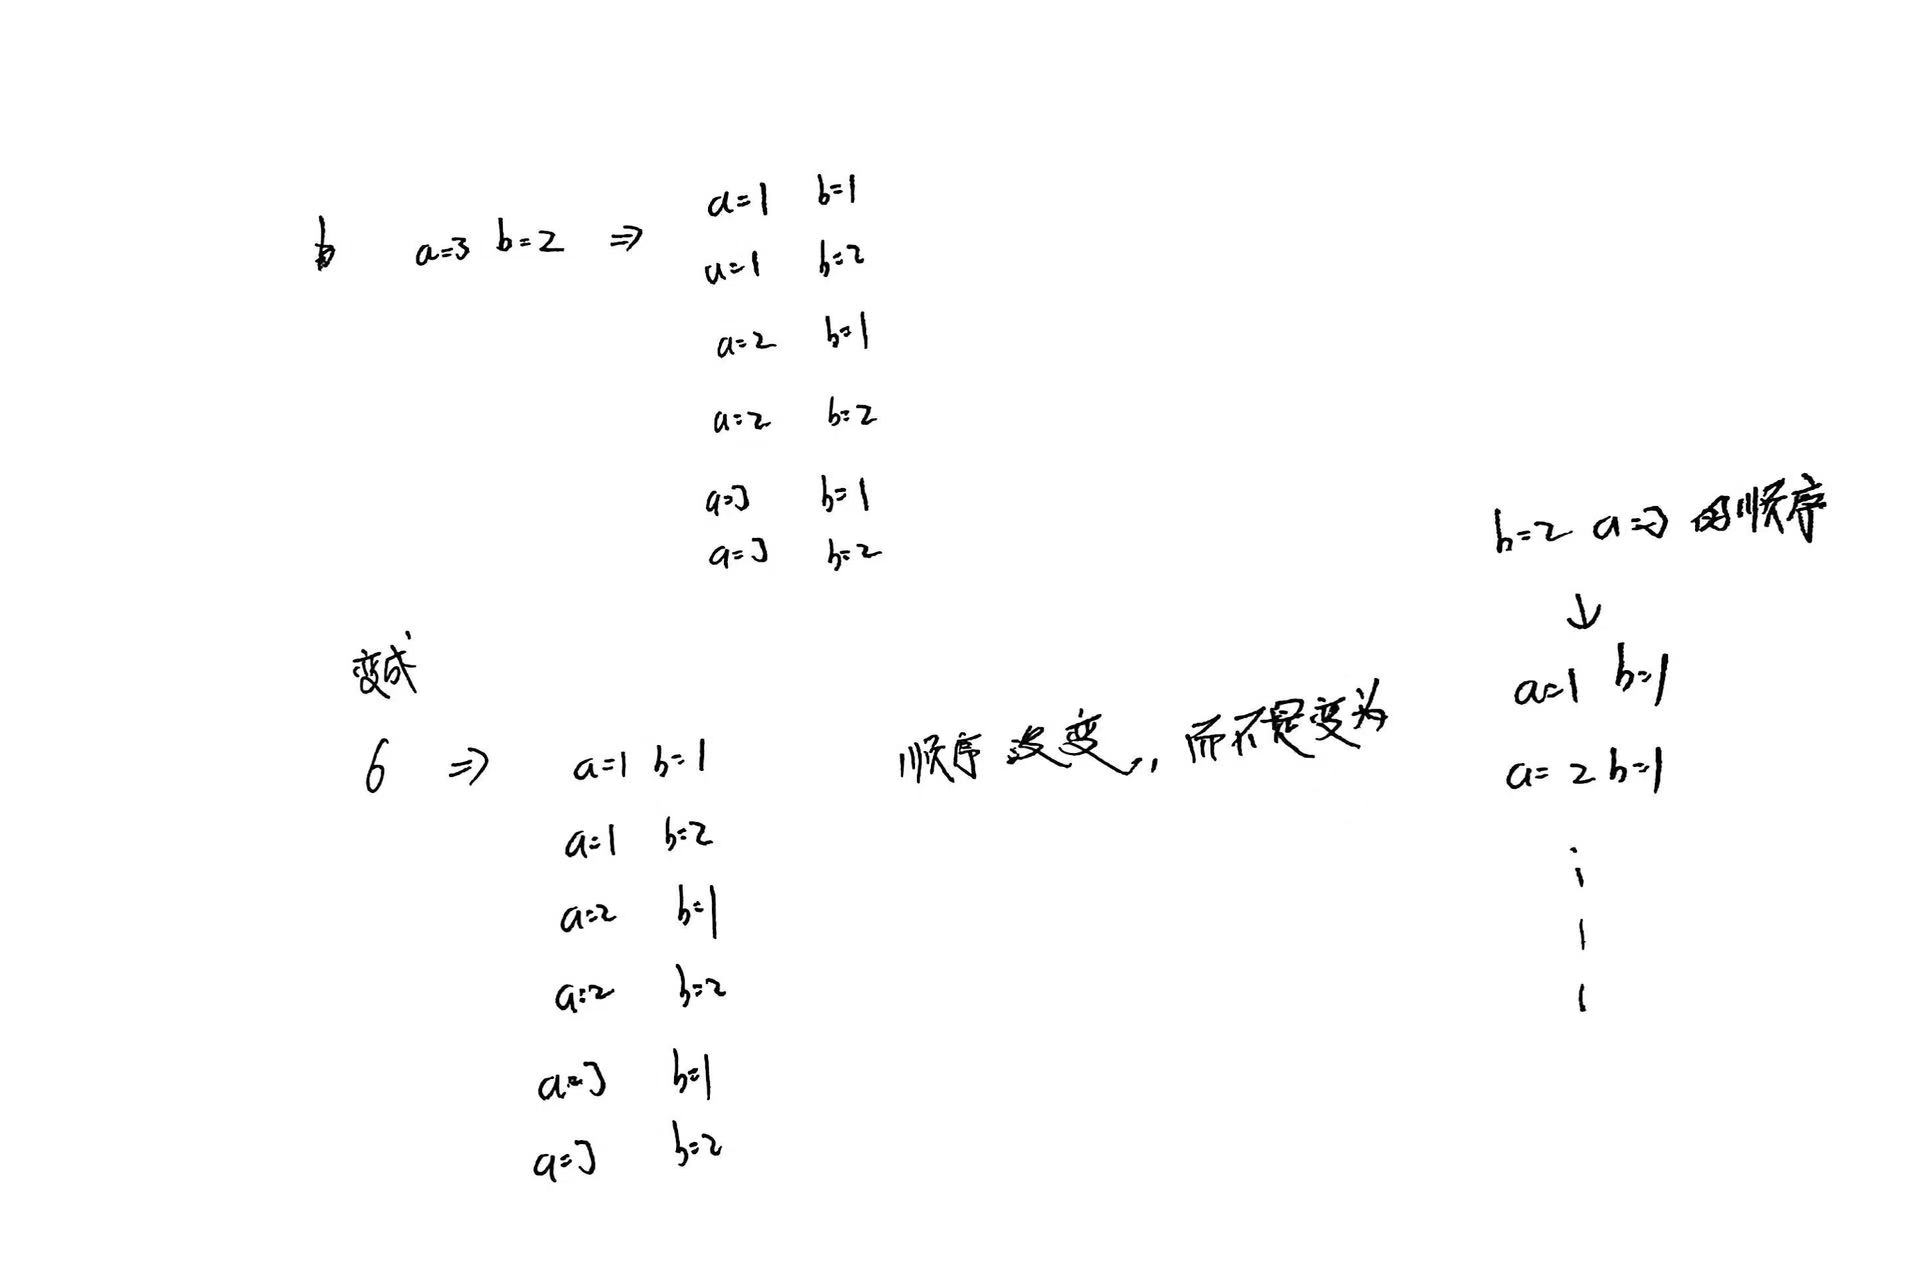 a=3 b=2 ⇒
a=1 b=1
a=1 b=2
a=2 b=1
a=2 b=2
a=3 b=1
a=3 b=2
变成
6 ⇒
a=1 b=1
a=1 b=2
a=2 b=1
a=2 b=2
a=3 b=1
a=3 b=2
顺序没变,而不是变为
b=2 a=3 的顺序
↓
a=1 b=1
a=2 b=1